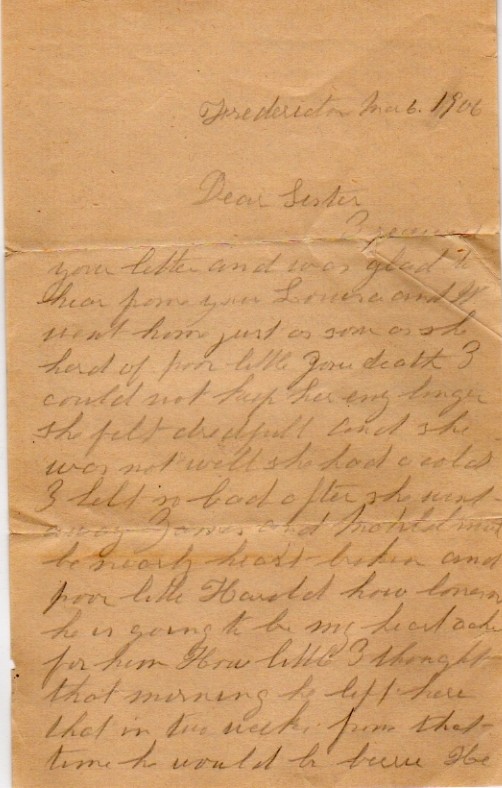 Fredericton Mar 6. 1906
Dear Sister
I
your letter and was glad to
hear from you Louisa and W
went hom just as soon as she
herd of poor little death I
could not keep her eny longer
she felt dredfull and she
was not well she had a cold
I felt so bad after she went
away and must
be nearly heart broken and
poor little Harold how
he is going to be my heart ache
for him How little I thought
that morning he left here
that in two weeks from that
time he would be He